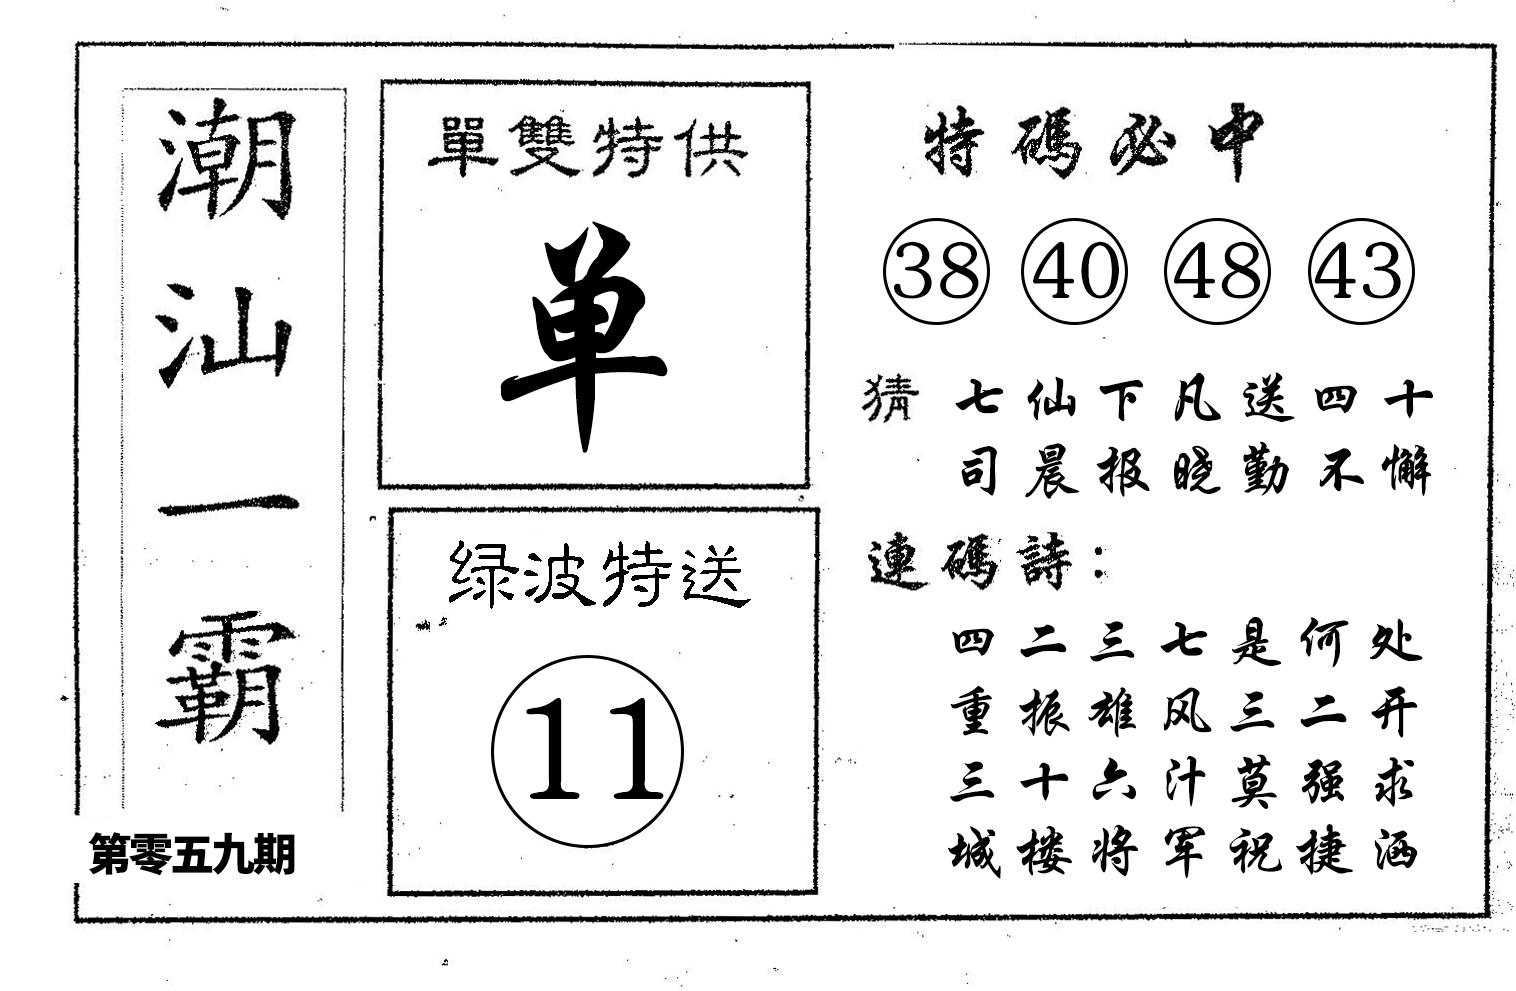 潮汕一霸
第零五九期
單雙特供
单
绿波特送
11
特碼必中
38 40 48 43
猜 七仙下凡送四十
司晨报晓勤不懈
連碼詩：
四二三七是何处
重振雄风三二开
三十六汁莫强求
城楼将军祝捷酒